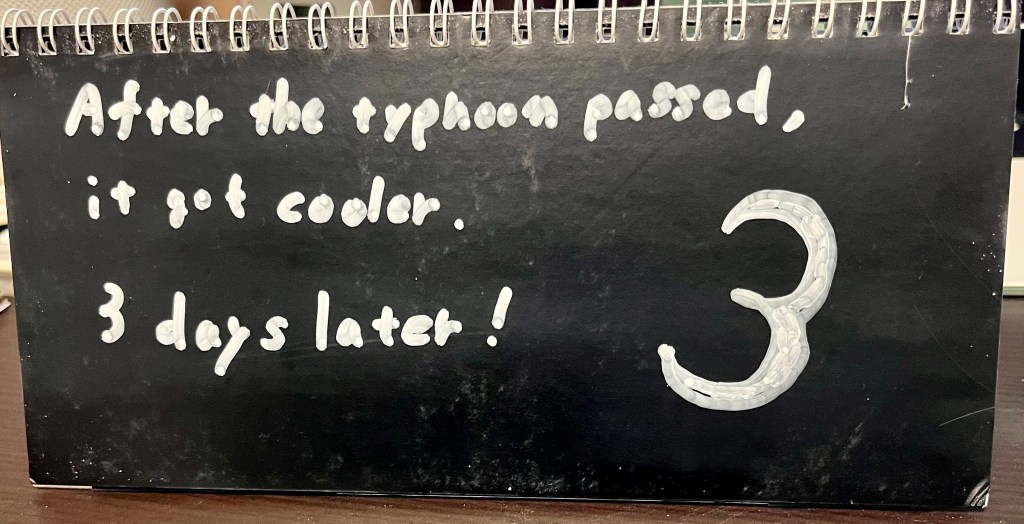 After the typhoon passed,
it got cooler.
3 days later!
3